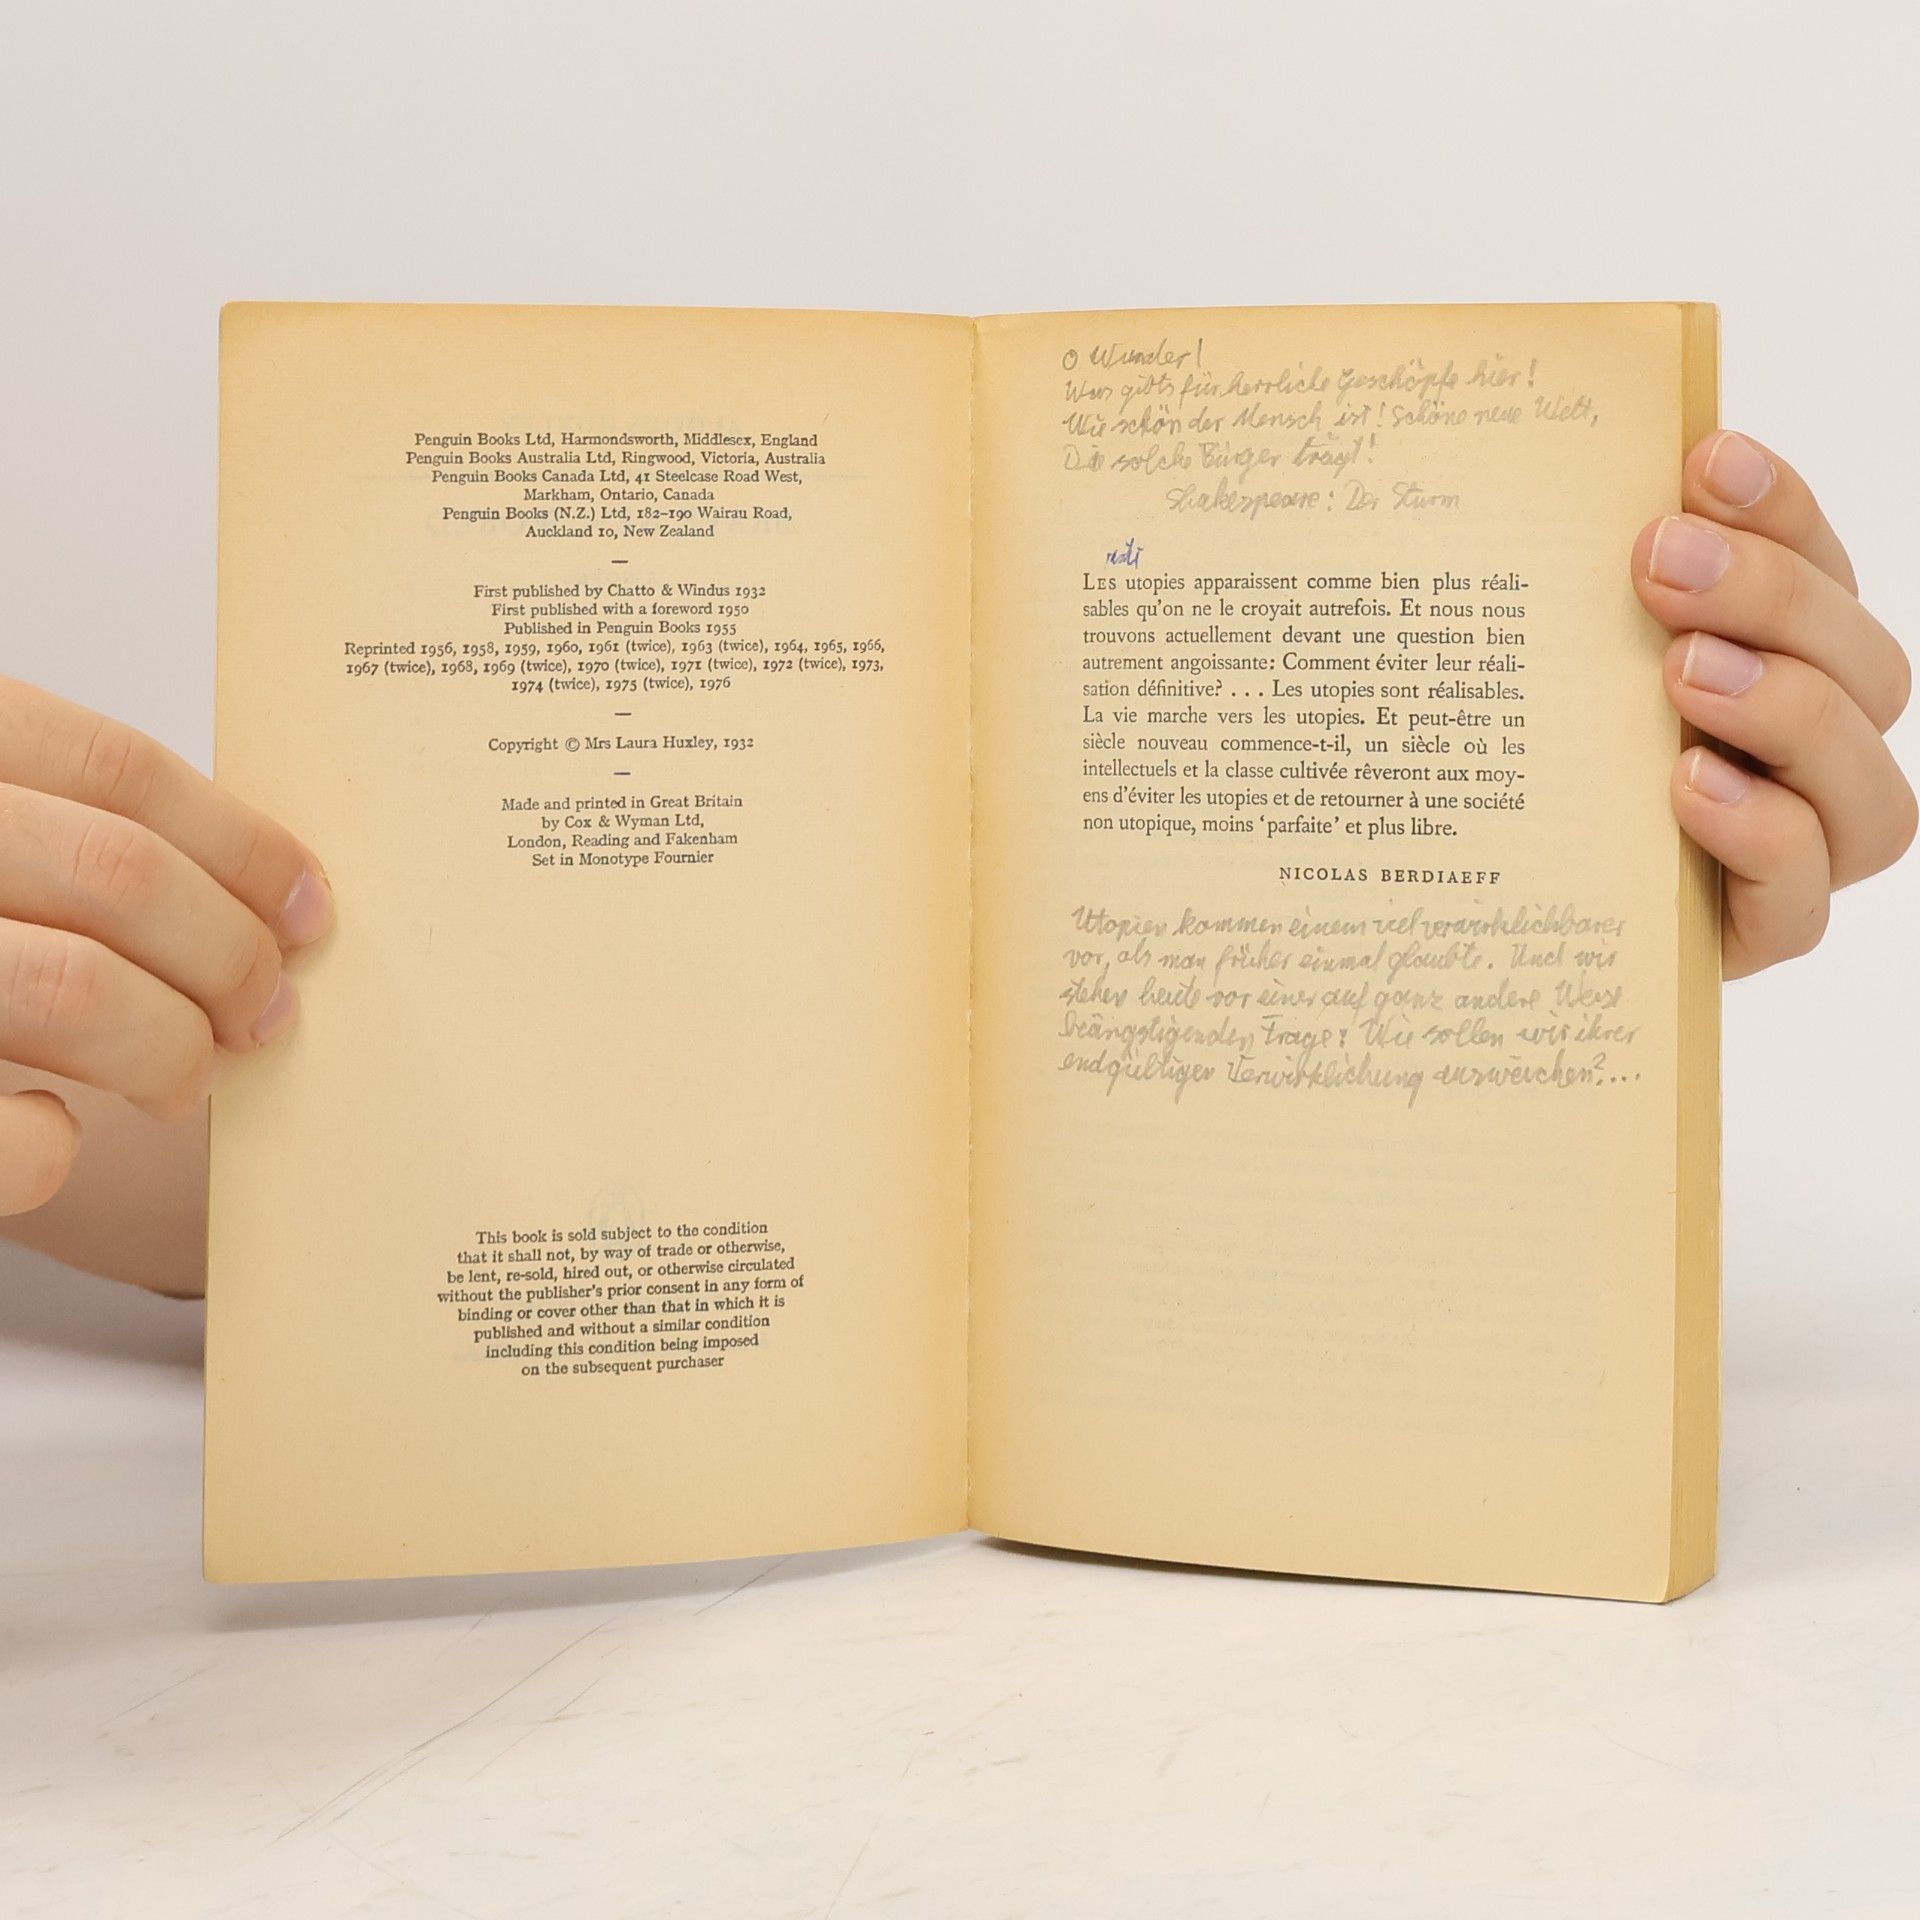 Penguin Books Ltd, Harmondsworth, Middlesex, England
Penguin Books Australia Ltd, Ringwood, Victoria, Australia
Penguin Books Canada Ltd, 41 Steelcase Road West,
Markham, Ontario, Canada
Penguin Books (N.Z.) Ltd, 182–190 Wairau Road,
Auckland 10, New Zealand
—
First published by Chatto & Windus 1932
First published with a foreword 1950
Published in Penguin Books 1955
Reprinted 1956, 1958, 1959, 1960, 1961 (twice), 1963 (twice), 1964, 1965, 1966,
1967 (twice), 1968, 1969 (twice), 1970 (twice), 1971 (twice), 1972 (twice), 1973,
1974 (twice), 1975 (twice), 1976
—
Copyright © Mrs Laura Huxley, 1932
—
Made and printed in Great Britain
by Cox & Wyman Ltd,
London, Reading and Fakenham
Set in Monotype Fournier
This book is sold subject to the condition
that it shall not, by way of trade or otherwise,
be lent, re-sold, hired out, or otherwise circulated
without the publisher's prior consent in any form of
binding or cover other than that in which it is
published and without a similar condition
including this condition being imposed
on the subsequent purchaser
O Wunder!
Was gibts für herrliche Geschöpfe hier!
Wie schön der Mensch ist! Schöne neue Welt,
Die solche Bürger trägt!
Shakespeare: Der Sturm
LES utopies apparaissent comme bien plus réali-
sables qu'on ne le croyait autrefois. Et nous nous
trouvons actuellement devant une question bien
autrement angoissante: Comment éviter leur réali-
sation définitive? . . . Les utopies sont réalisables.
La vie marche vers les utopies. Et peut-être un
siècle nouveau commence-t-il, un siècle où les
intellectuels et la classe cultivée rêveront aux moy-
ens d'éviter les utopies et de retourner à une société
non utopique, moins 'parfaite' et plus libre.
NICOLAS BERDIAEFF
Utopien kommen einem viel verwirklichbarer
vor, als man früher einmal glaubte. Und wir
stehen heute vor einer auf ganz andere Weise
beängstigenden Frage: Wie sollen wir ihrer
endgültigen Verwirklichung ausweichen?...